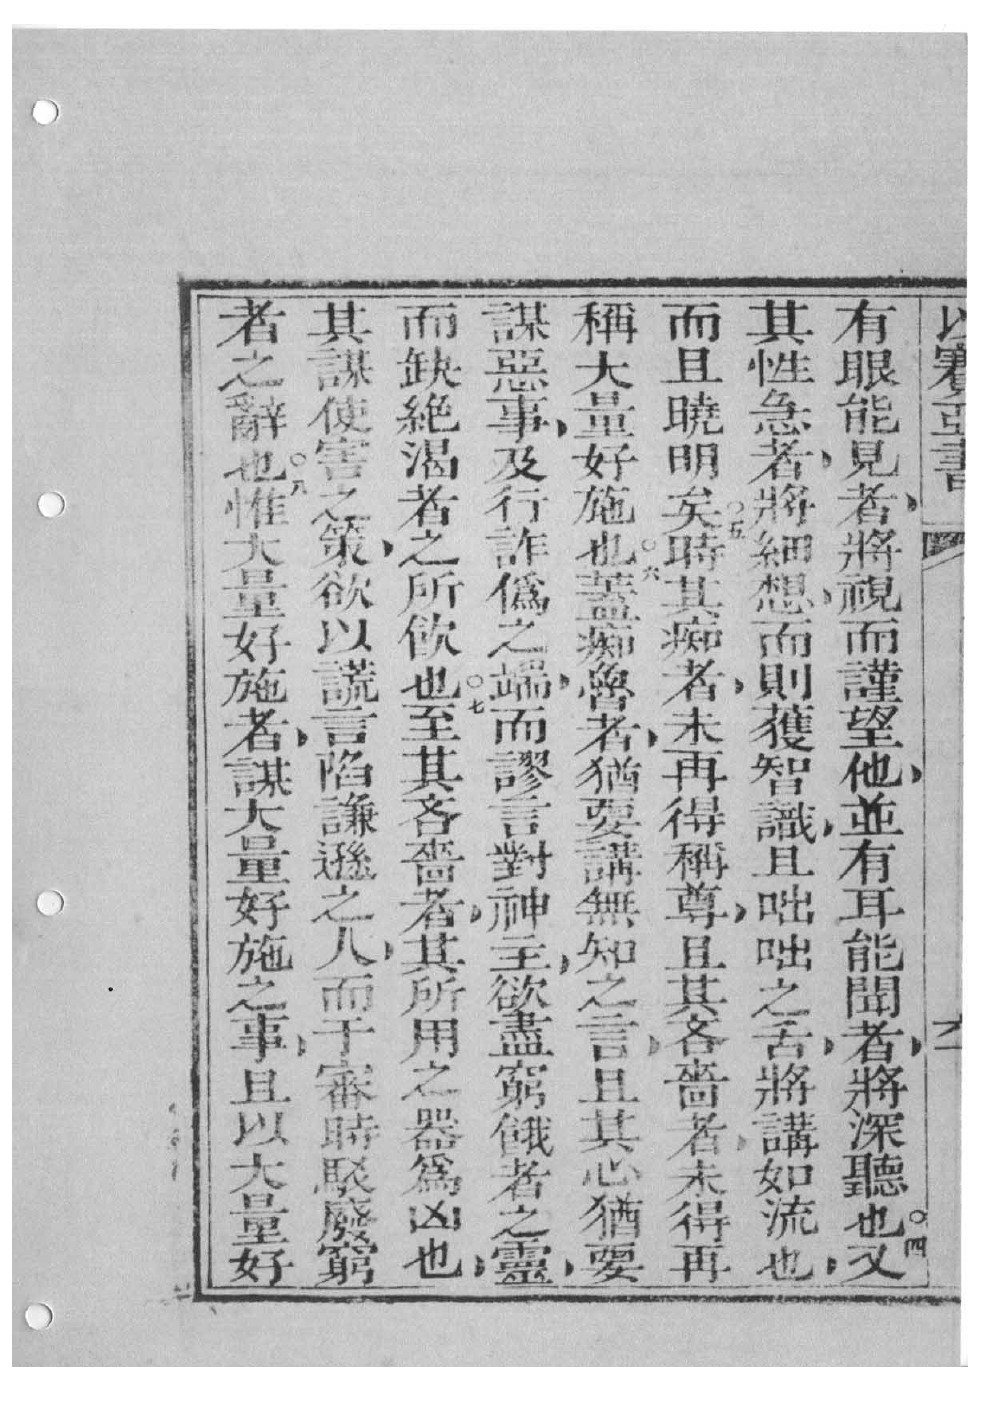 以賽亞書
有眼能見者、將視而謹望他、並有耳能聞者、將深聽也○四又
其性急者、將細想、而則獲智識、且咄咄之舌、將講如流也、
而且曉明矣○五時其痴者、未再得稱尊、且其吝嗇者、未得再
稱大量好施也○六蓋痴魯者、猶要講無知之言、且其心猶要
謀惡事、及行詐僞之端、而謬言對神主、欲盡窮餓者之靈、
而缺絶渴者之所飲也○七至其吝嗇者、其所用之器爲凶也、
其謀使害之策、欲以謊言陷謙遜之人、而于審時駁廢窮
者之辭也○八惟大量好施者、謀大量好施之事、且以大量好